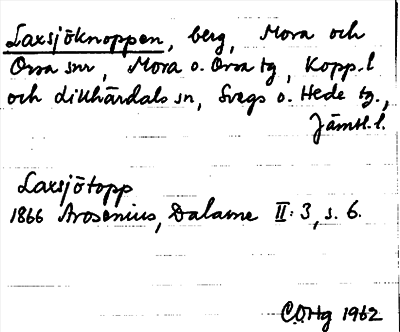 Laxsjöknoppen, berg, Mora och
Orsa snr, Mora o. Orsa tg, Kopp. l
och Lillhärdals sn, Svegs o. Hede tg.,
Jämtl. l.
Laxsjötopp
1866 Arosenius, Dalarne II: 3, s. 6.
COHg 1962